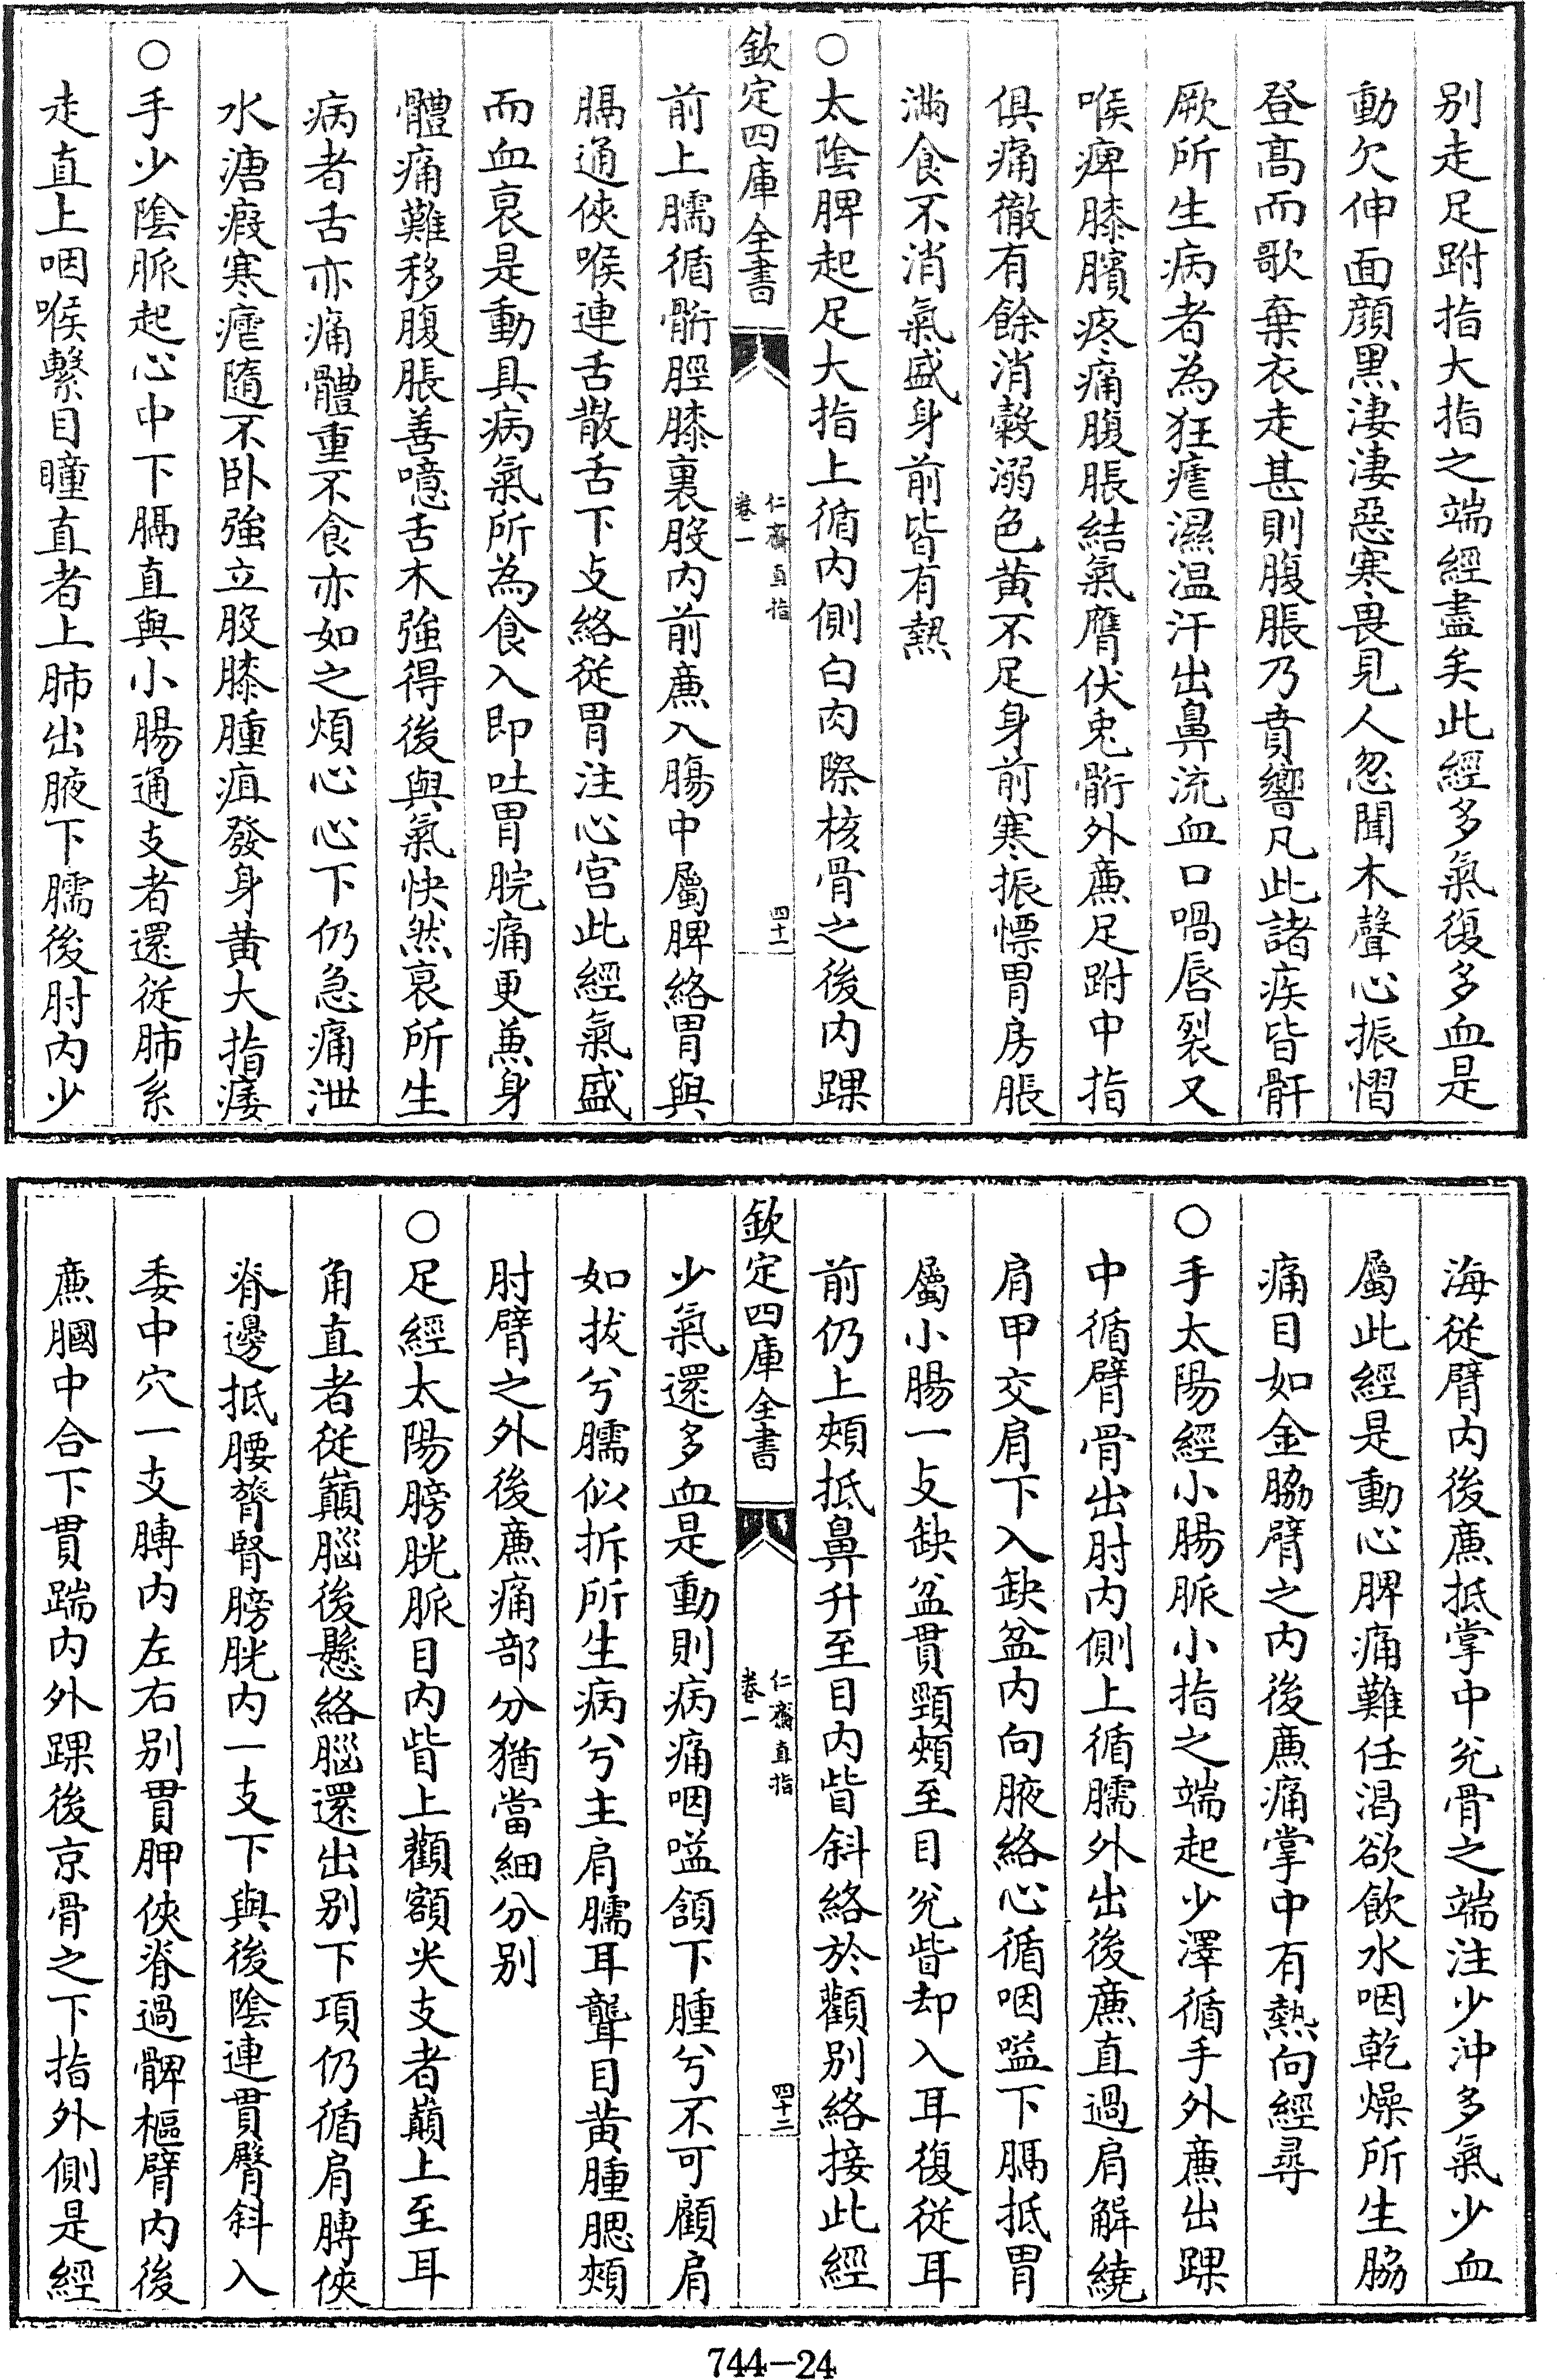 别走足跗指大指之端經盡矣此經多氣復多血是
動欠伸面顔黒淒淒惡寒畏見人忽聞木聲心振慴
登髙而歌棄衣走甚則腹脹乃賁響凡此諸疾皆骭
厥所生病者為狂瘧濕温汗出鼻流血口喎唇裂又
喉痺膝臏疼痛腹脹結氣膺伏兎䯒外㢘足跗中指
俱痛徹有餘消糓溺色黄不足身前寒振慓胃房脹
滿食不消氣盛身前皆有熱
○太陰脾起足大指上循内側白肉際核骨之後内踝
欽定四庫全書
仁齋直指
卷一
四十一
前上臑循䯒脛膝裏股内前㢘入腸中屬脾絡胃與
膈通俠喉連舌散舌下攴絡従胃注心宫此經氣盛
而血衰是動具病氣所為食入即吐胃脘痛更兼身
體痛難移腹脹善噫舌木強得後與氣快然衰所生
病者舌亦痛體重不食亦如之煩心心下仍急痛泄
水溏瘕寒瘧隨不卧強立股膝腫疽發身黄大指痿
○手少陰脈起心中下膈直與小腸通支者還従肺系
走直上咽喉繫目瞳直者上肺出腋下臑後肘内少
海従臂内後㢘抵掌中兊骨之端注少沖多氣少血
屬此經是動心脾痛難任渇欲飲水咽乾燥所生脇
痛目如金脇臂之内後㢘痛掌中有熱向經尋
○手太陽經小腸脈小指之端起少澤循手外㢘出踝
中循臂骨出肘内側上循臑外出後㢘直過肩解繞
肩甲交肩下入缺盆内向腋絡心循咽嗌下膈抵胃
屬小腸一攴缺盆貫頸頰至目兊眥却入耳復従耳
前仍上頰抵鼻升至目内眥斜絡於顴别絡接此經
欽定四庫全書
仁齋直指
卷一
四十二
少氣還多血是動則病痛咽嗌頷下腫兮不可顧肩
如拔兮臑似拆所生病兮主肩臑耳聾目黄腫腮頰
肘臂之外後㢘痛部分猶當細分别
○足經太陽膀胱脈目内眥上顴額尖支者巔上至耳
角直者従巔腦後懸絡腦還出别下項仍循肩膊俠
脊邊抵腰膂腎膀胱内一支下與後陰連貫臀斜入
委中穴一支膊内左右别貫胛俠脊過髀樞臂内後
㢘膕中合下貫踹内外踝後京骨之下指外側是經
744-24